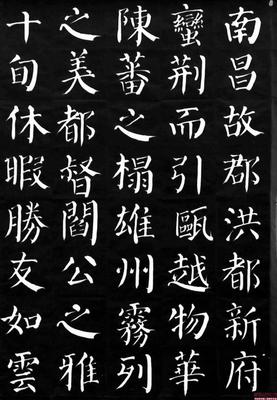 南昌故郡洪都新府
蠻荊而引甌越物華
陳蕃之榻雄州霧列
之美都督閻公之雅
十旬休暇勝友如雲